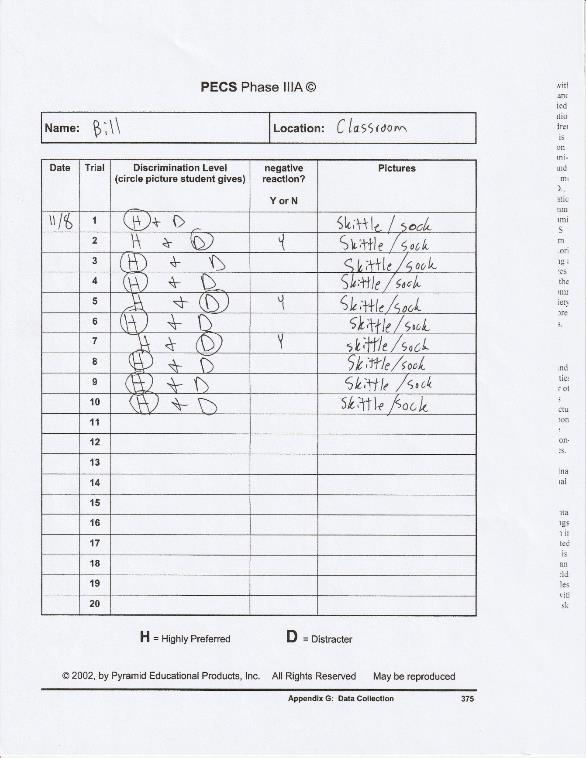 PECS Phase IIIA ©
Name: Bill Location: Classroom
Date Trial Discrimination Level (circle picture student gives) negative reaction? Y or N Pictures
11/8 1 H + D Skittle / sock
2 H + D Y Skittle / sock
3 H + D Skittle / sock
4 H + D Skittle / sock
5 H + D Y Skittle / sock
6 H + D Skittle / sock
7 H + D Y skittle / sock
8 H + D Skittle / sock
9 H + D Skittle / sock
10 H + D Skittle / sock
11
12
13
14
15
16
17
18
19
20
H = Highly Preferred D = Distracter
© 2002, by Pyramid Educational Products, Inc. All Rights Reserved May be reproduced
Appendix G: Data Collection 375